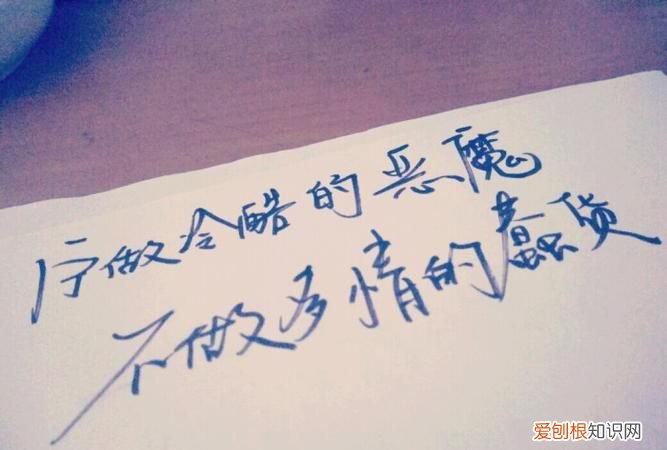 宁做冷酷的恶魔
不做多情的蠢货
爱刨根知识网